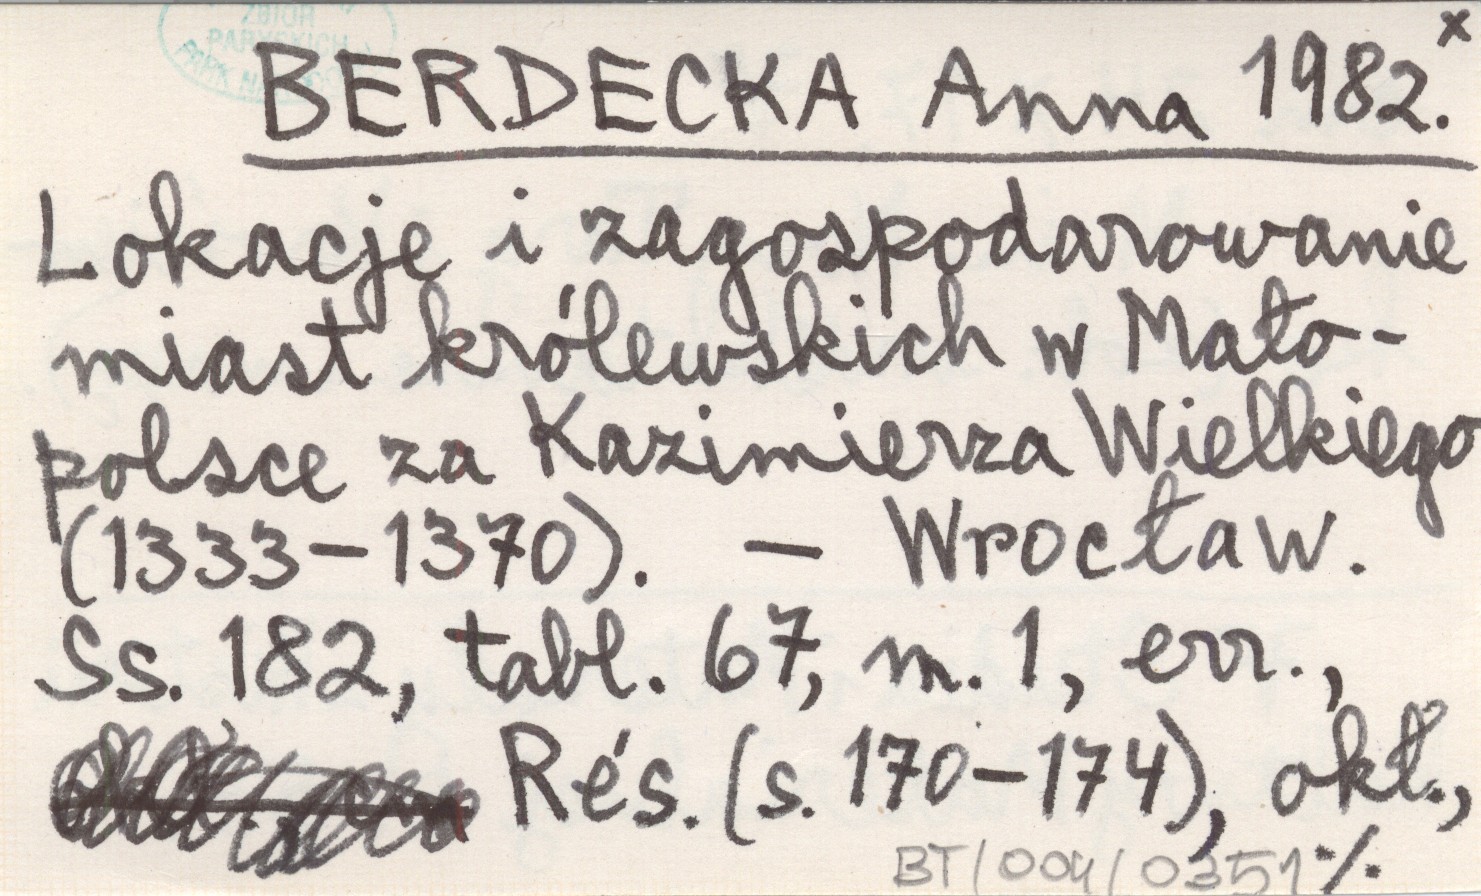 ZBIÓR
BERDECKA Anna 1982.x
Lokacje i zagospodarowanie
miast królewskich w Mało-
polsce za Kazimierza Wielkiego
(1333-1370). - Wrocław.
Ss. 182, tabl. 67, m. 1, err.,
Rés. (s. 170-174), okł.,
BT/004/0351 ./.